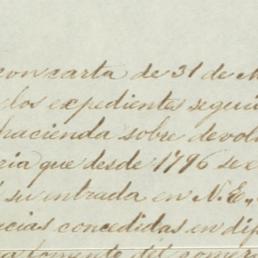 con carta de 31 de M
dos expedientes segui
hacienda sobre devol
ria que desde 1796 se e
su entrada en N. E.
cias concedidas en di
fomento del comer